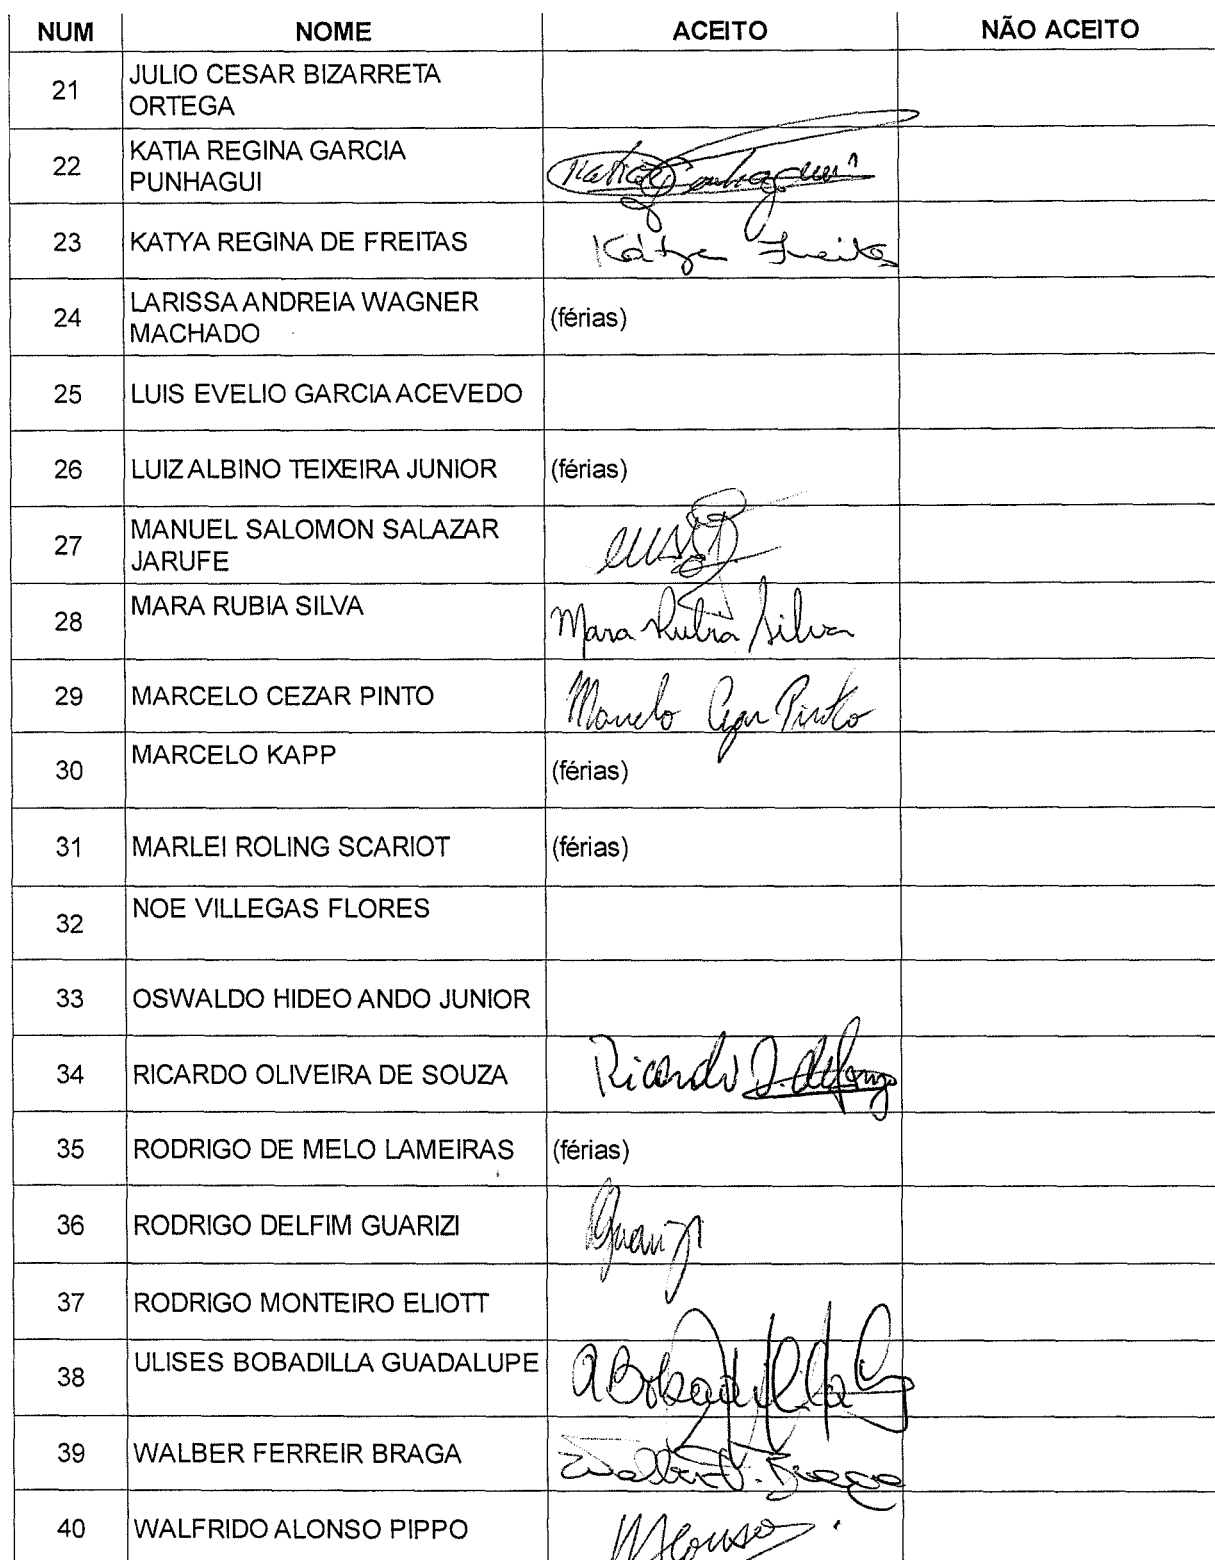 NUM NOME ACEITO NÃO ACEITO
21 JULIO CESAR BIZARRETA
ORTEGA
22 KATIA REGINA GARCIA
PUNHAGUI
23 KATYA REGINA DE FREITAS Kátya Freitas
24 LARISSA ANDREIA WAGNER
MACHADO (férias)
25 LUIS EVELIO GARCIA ACEVEDO
26 LUIZ ALBINO TEIXEIRA JUNIOR (férias)
27 MANUEL SALOMON SALAZAR
JARUFE
28 MARA RUBIA SILVA Mara Rubia Silva
29 MARCELO CEZAR PINTO Marcelo Cezar Pinto
30 MARCELO KAPP (férias)
31 MARLEI ROLING SCARIOT (férias)
32 NOE VILLEGAS FLORES
33 OSWALDO HIDEO ANDO JUNIOR
34 RICARDO OLIVEIRA DE SOUZA Ricardo O. de Souza
35 RODRIGO DE MELO LAMEIRAS (férias)
36 RODRIGO DELFIM GUARIZI Guarizi
37 RODRIGO MONTEIRO ELIOTT
38 ULISES BOBADILLA GUADALUPE
39 WALBER FERREIR BRAGA Walber F. Braga
40 WALFRIDO ALONSO PIPPO WAlonso